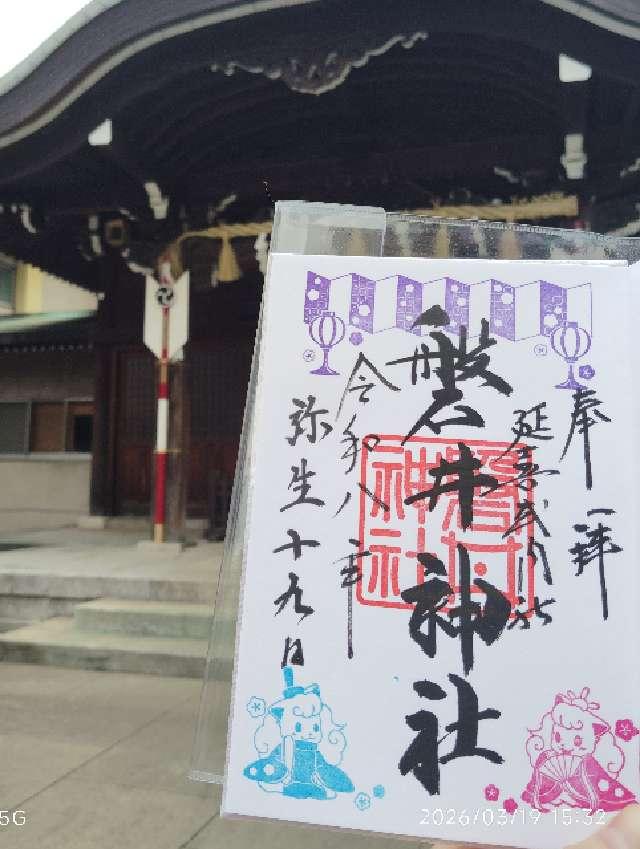 奉拝
延喜式内社
磐井神社
磐井神社
令和八年
弥生十九日
5G
2026/03/19 15:32